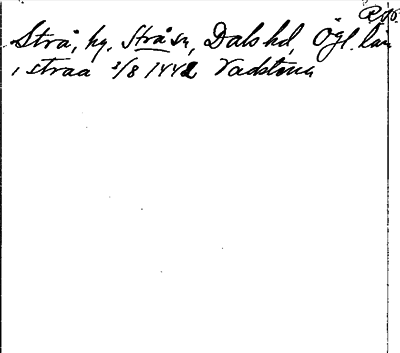 Rep.
Strå, hg. Strå sn, Dals hd, Ögl. län
i straa 3/8 1442 Vadstena